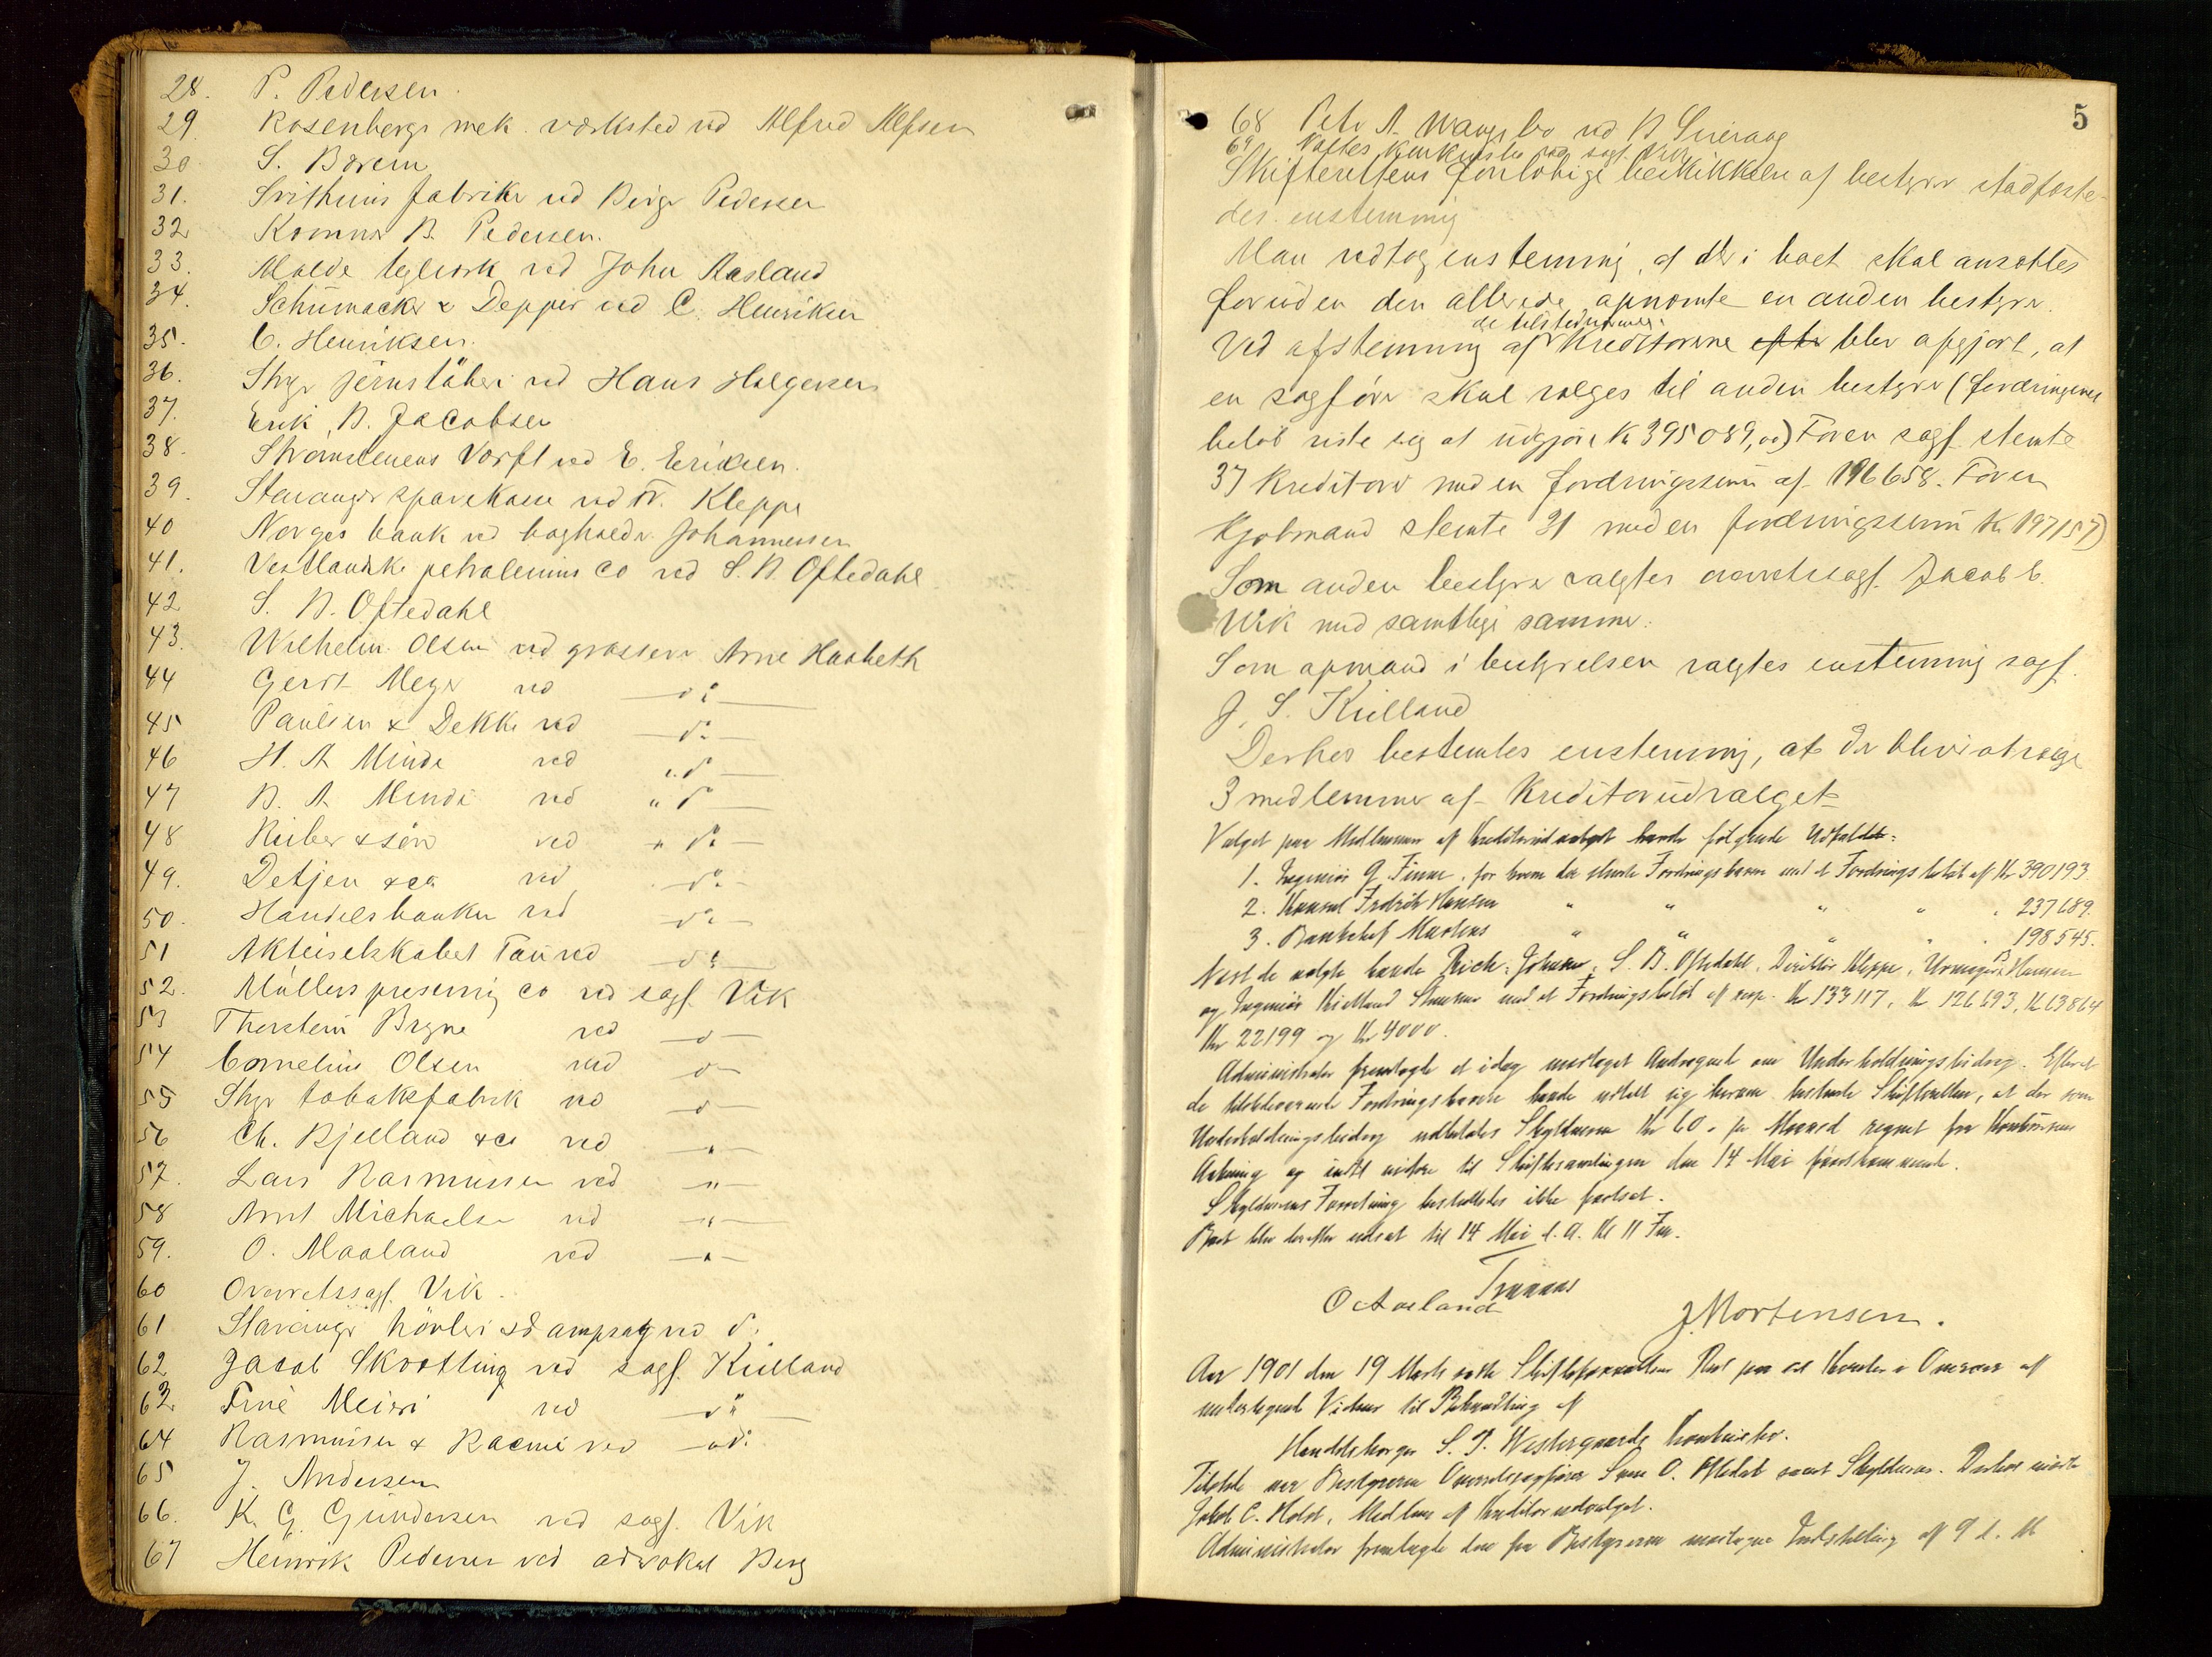 28. P. Pedersen.
29. Rosenbergs mek. værksted ved Alfred Alfsen
30. S. Bærem
31. Svithuns fabriker ved Birger Pedersen
32. B. Pedersen.
33. Malde teglværk ved John Aasland
34. Schumacker & Depper ved C. Henriksen
35. C. Henriksen.
36. Stvgr jernstöberi ved Hans Holgersen
37. Erik B. Jacobsen
38. Strömstenens Værft ved E. Eriksen.
39. Stavanger sparekasse ved Kleppe
40 Norges bank ved bogholder Johannessen
41. Vestlandske petroleums co ved S. B. Oftedahl
42 S. B. Oftedahl
43. Wilhelm Olsen ved grosserer Arne Haabeth
44 Gerdt Meyer ved — do —
45 Paulsen & Dekke ved — do —
46 H. A. Minde ved " do —
47 B. A. Minde ved " do —
48 Rieber & sön ved " do —
49. Detjen & co ved — do —
50. Handelsbanken ved — do —
51 Aktieselskabet Tau ved — do —
52. Müllers presening co ved sagf. Vik
53 Thorstein Bryne ved — d —
54 Cornelius Olsen ved d —
55 Stvgr tobaksfabrik ved — d —
56 Ch. Bjelland & co ved — " —
57. Lars Rasmussen ved — " —
58 Arnt Michaelsen ved — " —
59. O. Maaland ved — " —
60 Overretssagf. Vik.
61 Stavanger hövleri & dampsag ved do
62 Jacob Skrotting ved sagf. Kielland
63. Meieri ved — do —
64 Rasmussen & Racine ved — do
65 J. Andersen
66. K. G. Gundersen ved sagf. Vik
67 Henrik Pedersen ved advokat Berg
5
68 Petr A. ved B. Sieraag
69 ved sagf. Vik
Skifterettens forlöbige beskikkelse af bestyrer stadfæste-
des enstemmig
Man vedtog enstemmig, at der i boet skal ansættes
foruden den allerede opnævnte en anden bestyrer.
de tilstedeværende
Ved afstemning af Kreditorerne efter blev afgjort, at
en sagförer skal vælges til anden bestyrer (fordringernes
beløb viste sig at udgjöre Kr 395 089,00) For en sagf. stemte
37 Kreditorer med en fordringssum af 196 658. For en
Kjøbmand stemte 31 med en fordringssum Kr. 197157)
Som anden bestyrer valgtes overretssagf. Jacob C.
Vik med samtlige stemmer.
Som opmand i bestyrelsen valgtes enstemmig sagf.
J. S. Kielland
Derhos bestemtes enstemmig, at der bliver at vælge
3 medlemmer af Kreditorudvalget
Valget paa Medlemmer af Kreditorudvalget havde følgende Udfald:
1. Ingeniør G. Finne, for hvem der stemte Fordringshavere med et Fordringsbeløb af Kr 390193.
2. Konsul Fredrik Hansen " " " " " 237689.
3. Bankchef Martens " " " " 198545.
Næst de valgte havde Rich. Johnsen, S. B. Oftedahl, Direktör Kleppe, Urmager B. Hansen
og Ingeniør Kielland med et Fordringsbeløb af resp. Kr 133117, Kr 126693, Kr 63864
Kr 22199 og Kr 4000.
Administrator fremlagde et idag modtaget Andragende om Underholdningsbidrag. Efterat
de tilstedeværende Fordringshavere havde udtalt sig herom bestemte Skifteretten, at der som
Underholdningsbidrag udbetales Skyldneren Kr 60.- pr Maaned regnet fra Konkursens
Aabning og indtil videre til Skiftesamlingen den 14 Mai førstkommende.
Skyldnerens Forretning besluttedes ikke fortsat.
Boet blev derefter udsat til 14 Mai d. A. Kl 11 Fm.
O Aaeland
J. Mortensen.
Aar 1901 den 19 Marts sattes Skifteforvaltere Ret paa sit Kontor i Overvær af
undertegnede Vidner til Behandling af
Handelsborger S. T. Westergaards Konkursbo.
Tilstede var Bestyreren Overretssagfører Sven O. Oftedal samt Skyldneren. Derhos mødte
Jakob C. Holst, Medlem af Kreditorudvalget.
Administrator fremlagde den fra Bestyreren modtagne Indstilling af 9 d. M